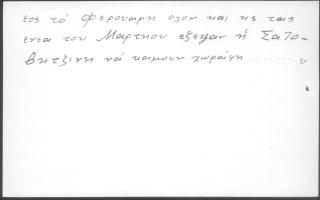 εος τό Φερουαρη ολον και ης τας
ενεα του Μαρτιου εξεψαν ή Σατο-
βητζινη νά καμουν χωράφη ........,,